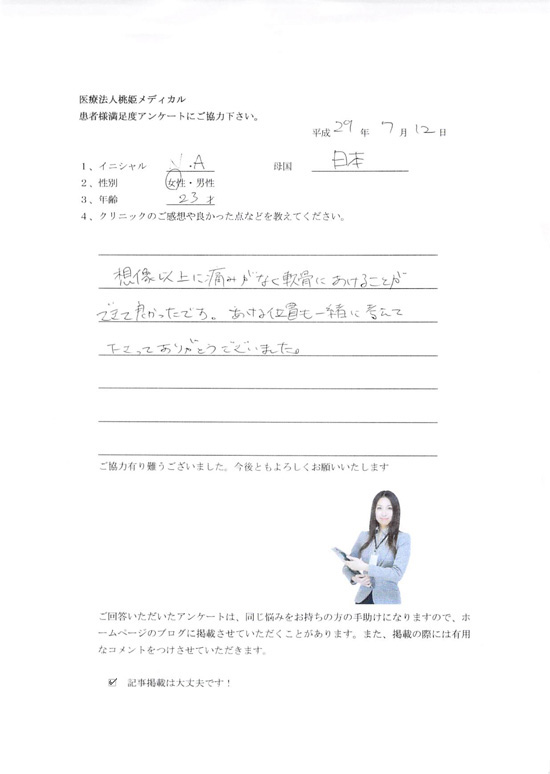 医療法人桃姫メディカル
患者様満足度アンケートにご協力下さい。
平成 29 年 7 月 12 日
1、イニシャル .A 母国 日本
2、性別 女性・男性
3、年齢 23 才
4、クリニックのご感想や良かった点などを教えてください。
想像以上に痛みがなく軟骨にあけることが
できて良かったです。あける位置も一緒に考えて
下さってありがとうございました。
ご協力有り難うございました。今後ともよろしくお願いいたします
ご回答いただいたアンケートは、同じ悩みをお持ちの方の手助けになりますので、ホ
ームページのブログに掲載させていただくことがあります。また、掲載の際には有用
なコメントをつけさせていただきます。
☑ 記事掲載は大丈夫です！